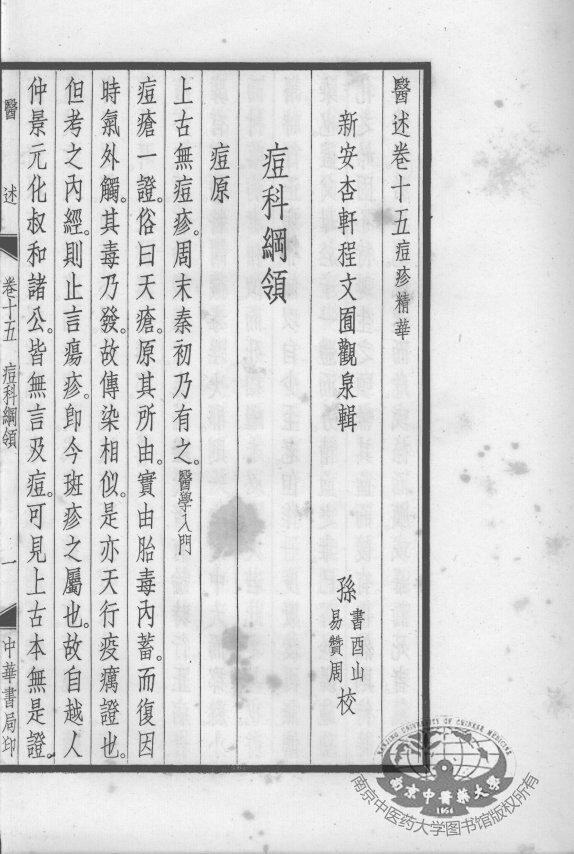 醫述卷十五 痘疹精華
新安杏軒程文囿觀泉輯
孫
書酉山
易贊周
校
痘科綱領
痘原
上古無痘疹。周末秦初乃有之。醫學入門
痘瘡一證。俗曰天瘡。原其所由。實由胎毒內蓄。而復因
時氣外觸。其毒乃發。故傳染相似。是亦天行疫癘證也。
但考之內經。則止言瘍疹。卽今斑疹之屬也。故自越人
仲景元化叔和諸公。皆無言及痘。可見上古本無是證。
醫述 卷十五 痘科綱領 一 中華書局印
NANJING UNIVERSITY OF CHINESE MEDICINE
南京中醫藥大學
1954
南京中医药大学图书馆版权所有